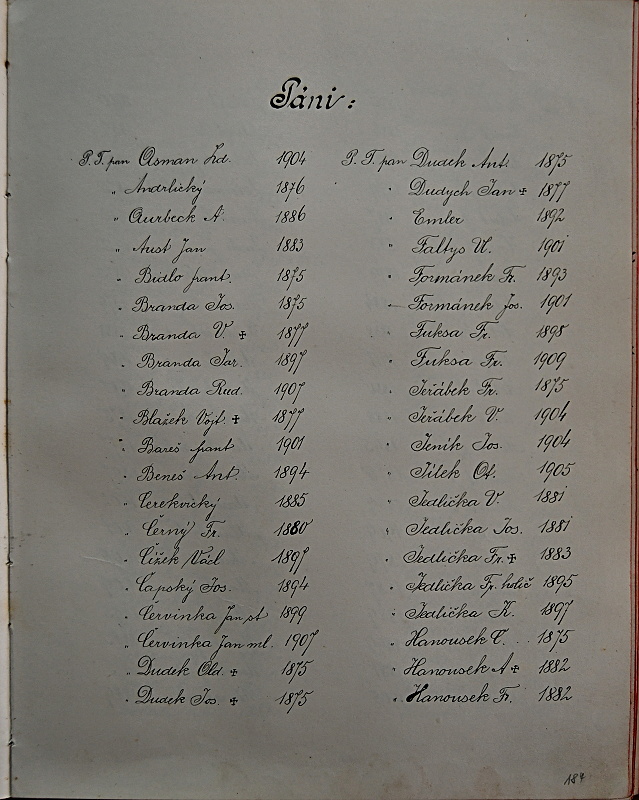 Páni:
P. T. pan Asman Zd. 1904
„ Andrlický 1876
„ Aurbeck A. 1886
„ Aust Jan 1883
„ Bidlo frant. 1875
„ Branda Jos. 1875
„ Branda V. ✠ 1877
„ Branda Jar. 1897
„ Branda Rud. 1907
„ Blažek Vojt. ✠ 1877
„ Bareš frant 1901
„ Beneš Ant. 1894
„ Cerekvický 1885
„ Černý Fr. 1880
„ Čížek Václ 1897
„ Čapský Jos. 1894
„ Červinka Jan st 1899
„ Červinka Jan ml. 1907
„ Dudek Old. ✠ 1875
„ Dudek Jos. ✠ 1875
P. T. pan Dudek Ant. 1875
„ Dudych Jan ✠ 1877
„ Emler 1892
„ Faltys 1901
„ Formánek Fr. 1893
„ Formánek Jos. 1901
„ Fuksa Fr. 1898
„ Fuksa Fr. 1909
„ Jeřábek Fr. 1875
„ Jeřábek V. 1904
„ Jeník Jos. 1904
„ Jílek Ot. 1905
„ Jedlička V. 1881
„ Jedlička Jos. 1881
„ Jedlička Fr. ✠ 1883
„ Jedlička Fr. holič 1895
„ Jedlička K. 1897
„ Hanousek Č. 1875
„ Hanousek A ✠ 1882
„ Hanousek Fr. 1882